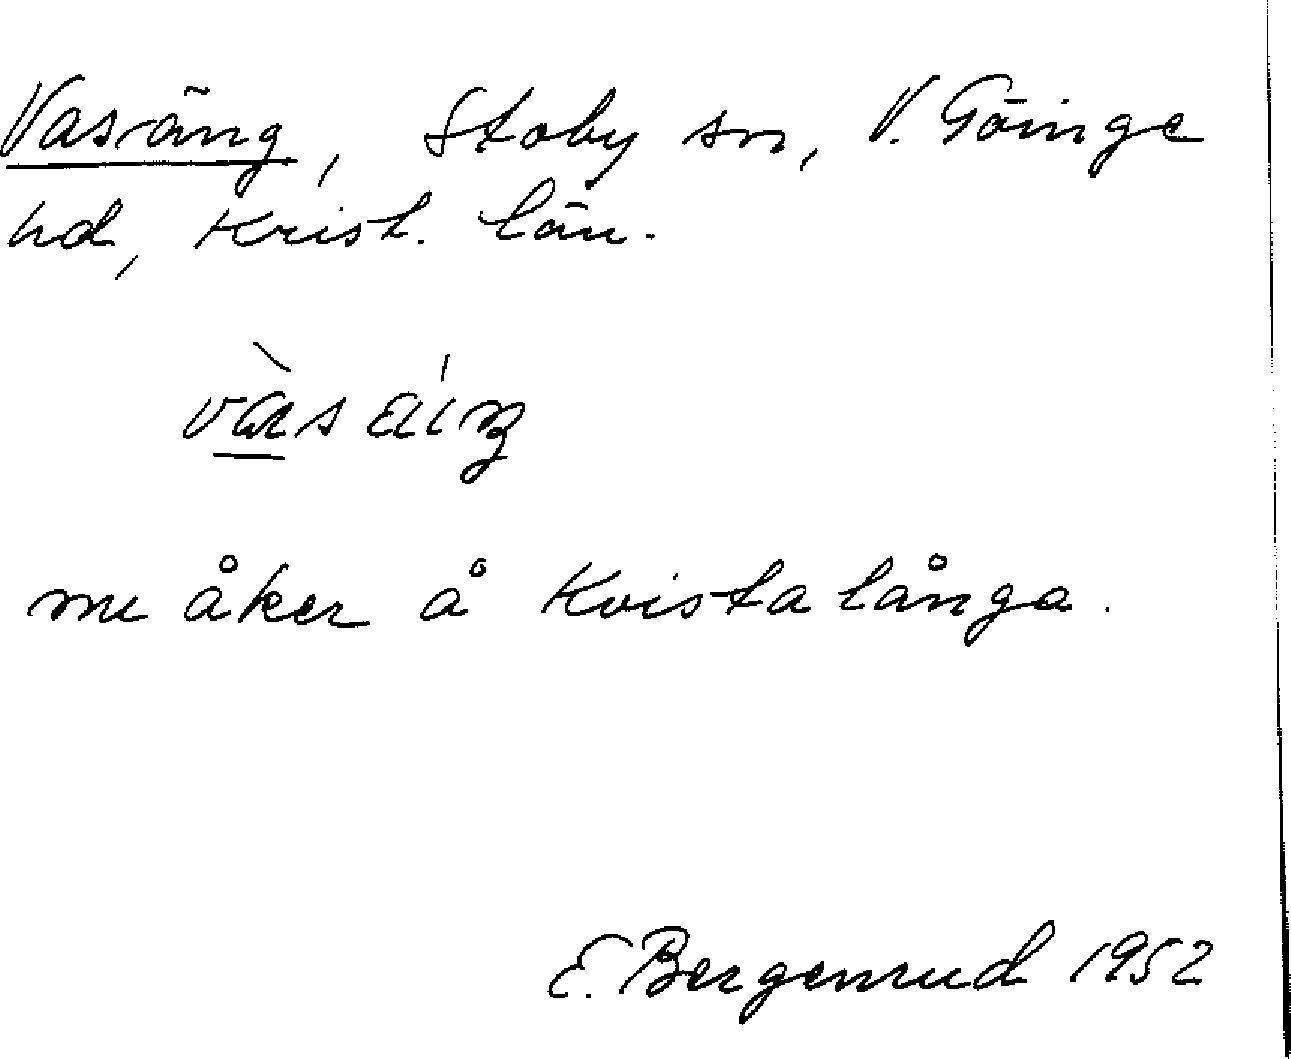 Vasäng, Stoby sn, V. Göinge
hd, Krist. län.
nu åker å Kvistalånga.
E. Bergenrud 1952